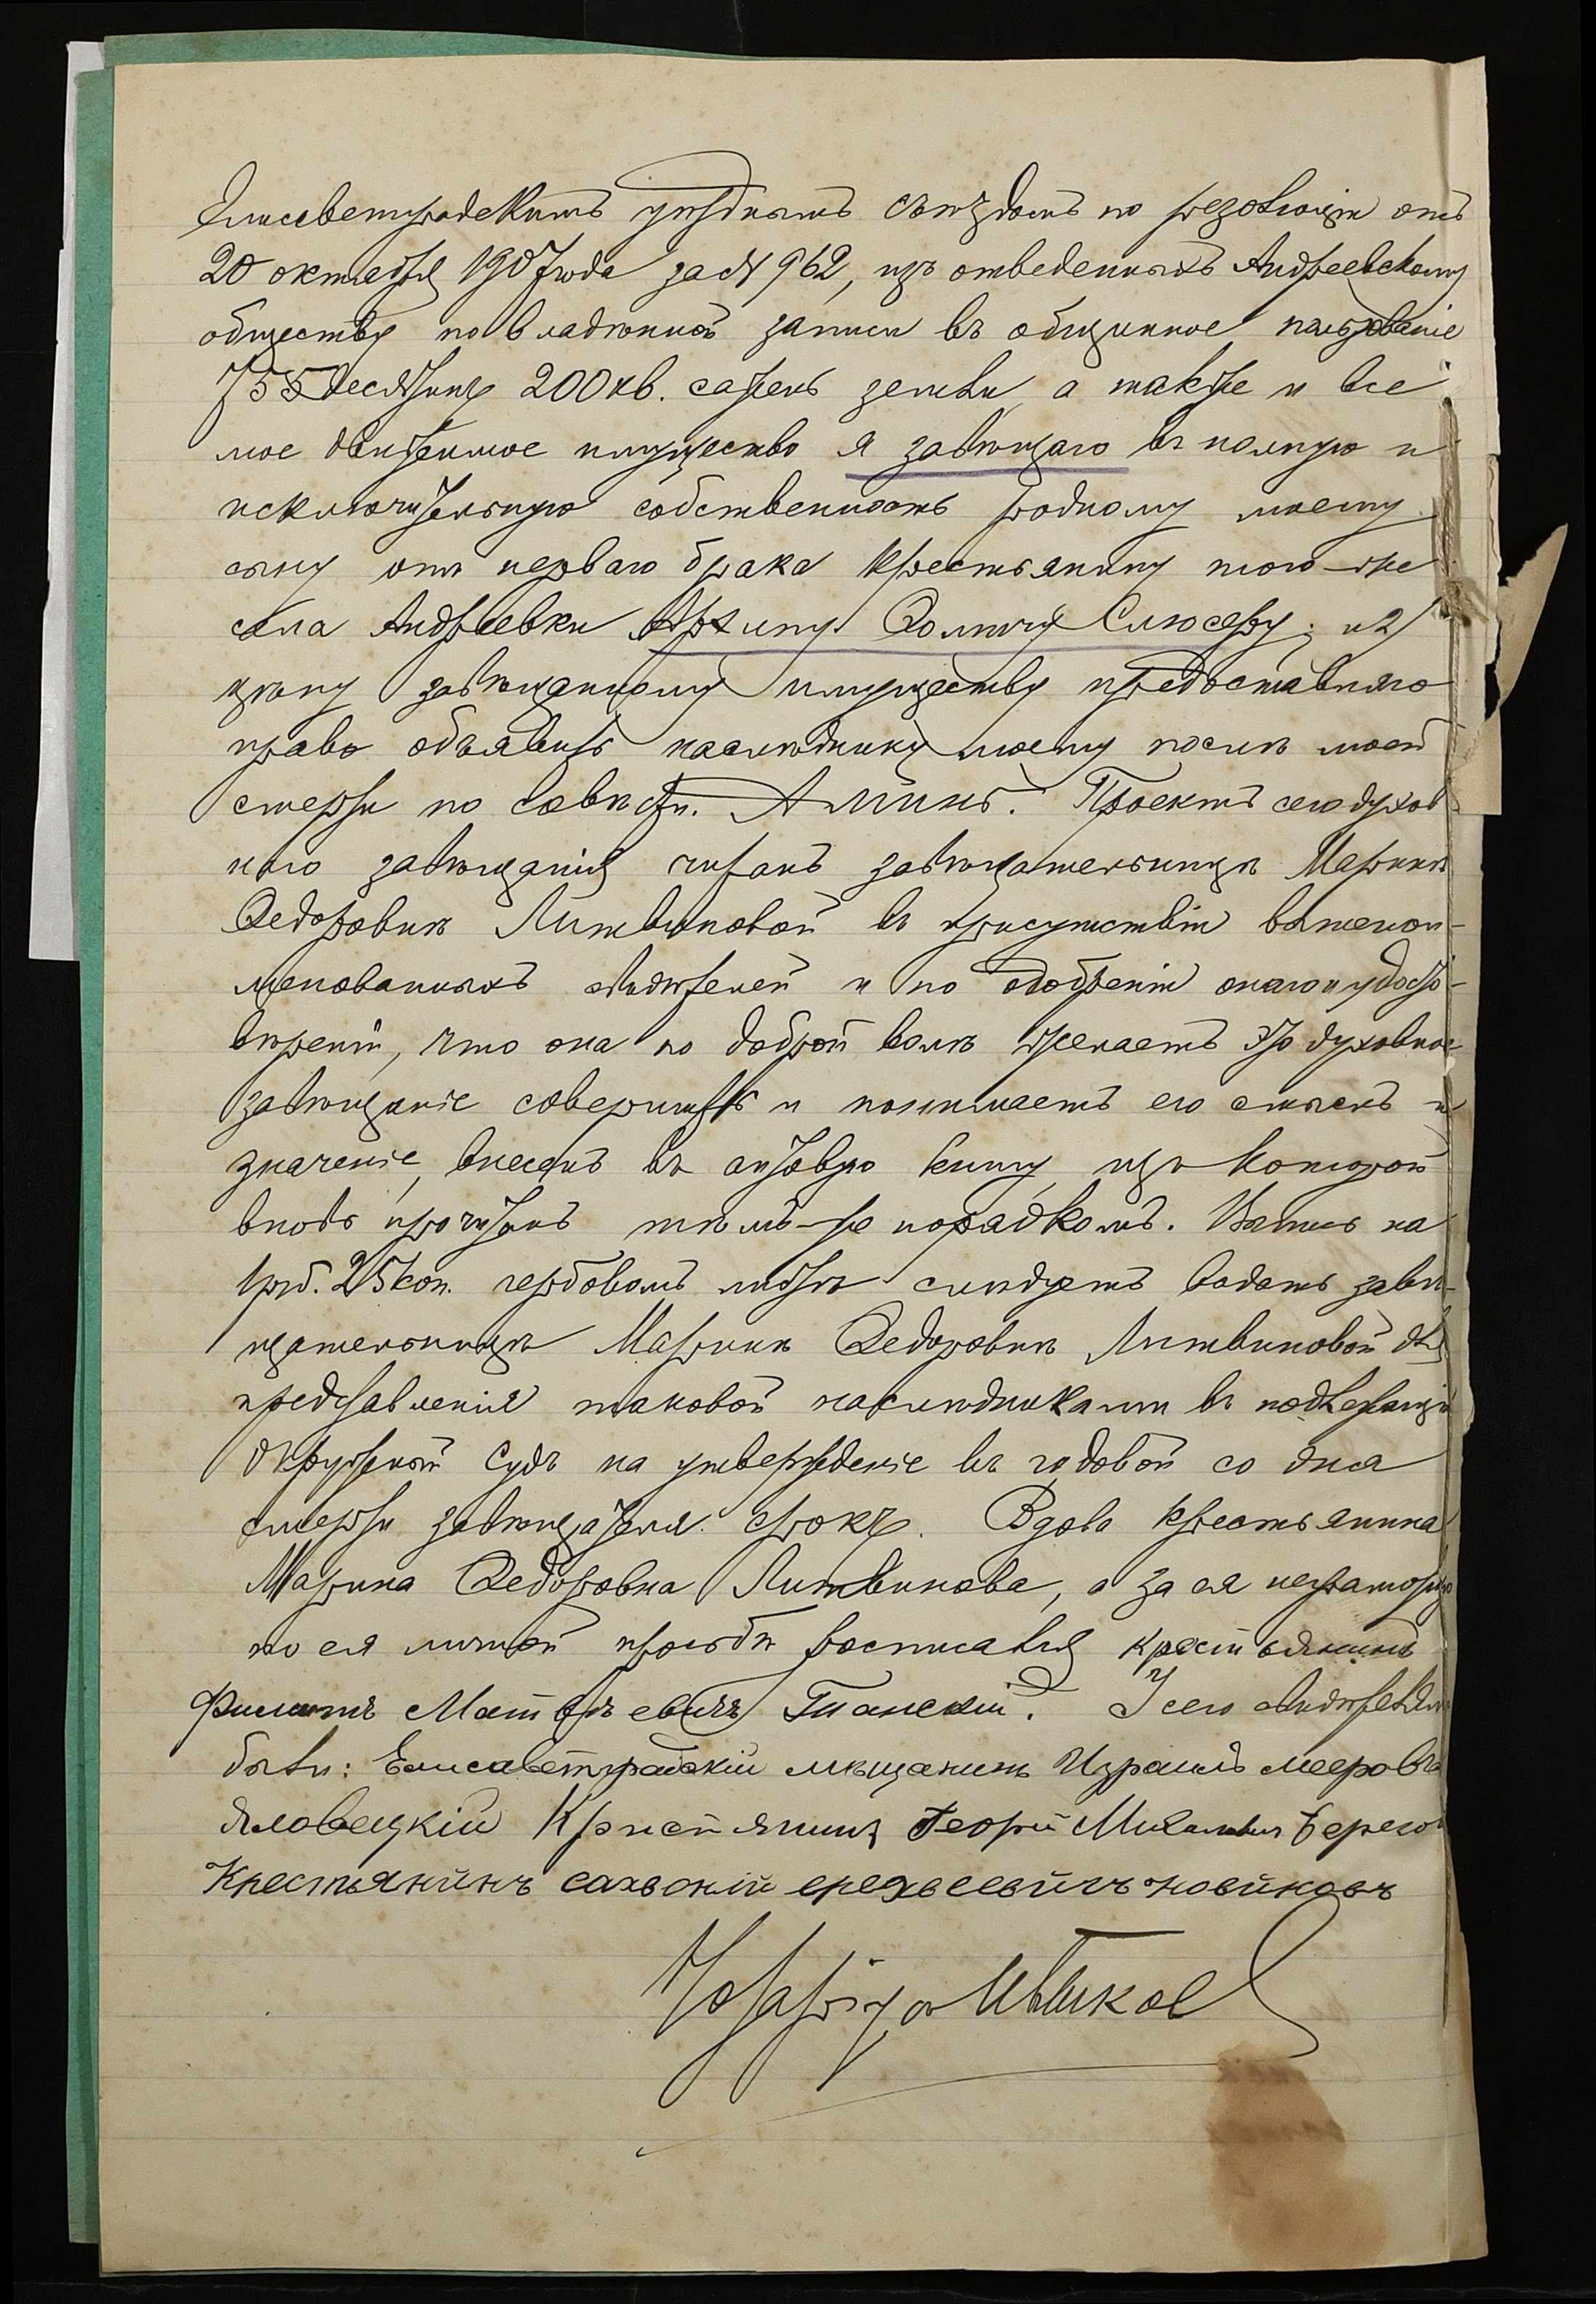 Елисаветградскимъ уѣзднымъ съѣздомъ по резолюціи отъ
20 октября 1907 года за № 962, изъ отведенныхъ Андреевскому
обществу по владѣнной записи въ общинное пользованіе
755 десятинъ 200 кв. сажень земли, а также и все
мое движимое имущество я завѣщаю въ полную и
исключительную собственность родному моему
сыну отъ перваго брака крестьянину того-же
села Андреевки Слюсарю; и 2/
цѣну завѣщанному имуществу предоставляю
право объявить наслѣднику моему послѣ моей
смерти по совѣсти. Аминь. Проектъ сего духов
наго завѣщанія читанъ завѣщательницѣ Маринѣ
Ѳедоровнѣ Литвиновой въ присутствіи вышепои-
менованныхъ свидѣтелей и по одобреніи онаго и удосто-
вѣреніи, что она по доброй волѣ желаетъ это духовное
завѣщаніе совершить и понимаетъ его смыслъ и
значеніе, внесенъ въ актовую книгу, изъ которой
вновь прочитанъ тѣмъ-же порядкомъ. Выпись на
1 руб. 25 коп. гербовомъ листѣ слѣдуетъ выдать завѣ-
щательницѣ Маринѣ Ѳедоровнѣ Литвиновой для
представленія таковой наслѣдниками въ подлежащій
Окружный Судъ на утвержденіе въ годовой со дня
смерти завѣщателя срокъ. Вдова крестьянина
Марина Ѳедоровна Литвинова, а за ея неграмотн
по ея личной просьбѣ росписался крестьянинъ
Филиппъ Матвѣевичъ Ганскій. У сего свидѣтелями
были: Елисаветградскій мѣщанинъ Израиль Мееровъ
Яловецкій Кристянинъ Георгій Михайловичъ
Крестьянинъ новиковъ
Нотаріусъ